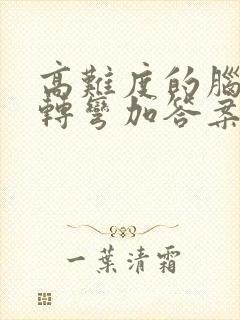 高難度的腦
轉彎加答案
一葉清霜